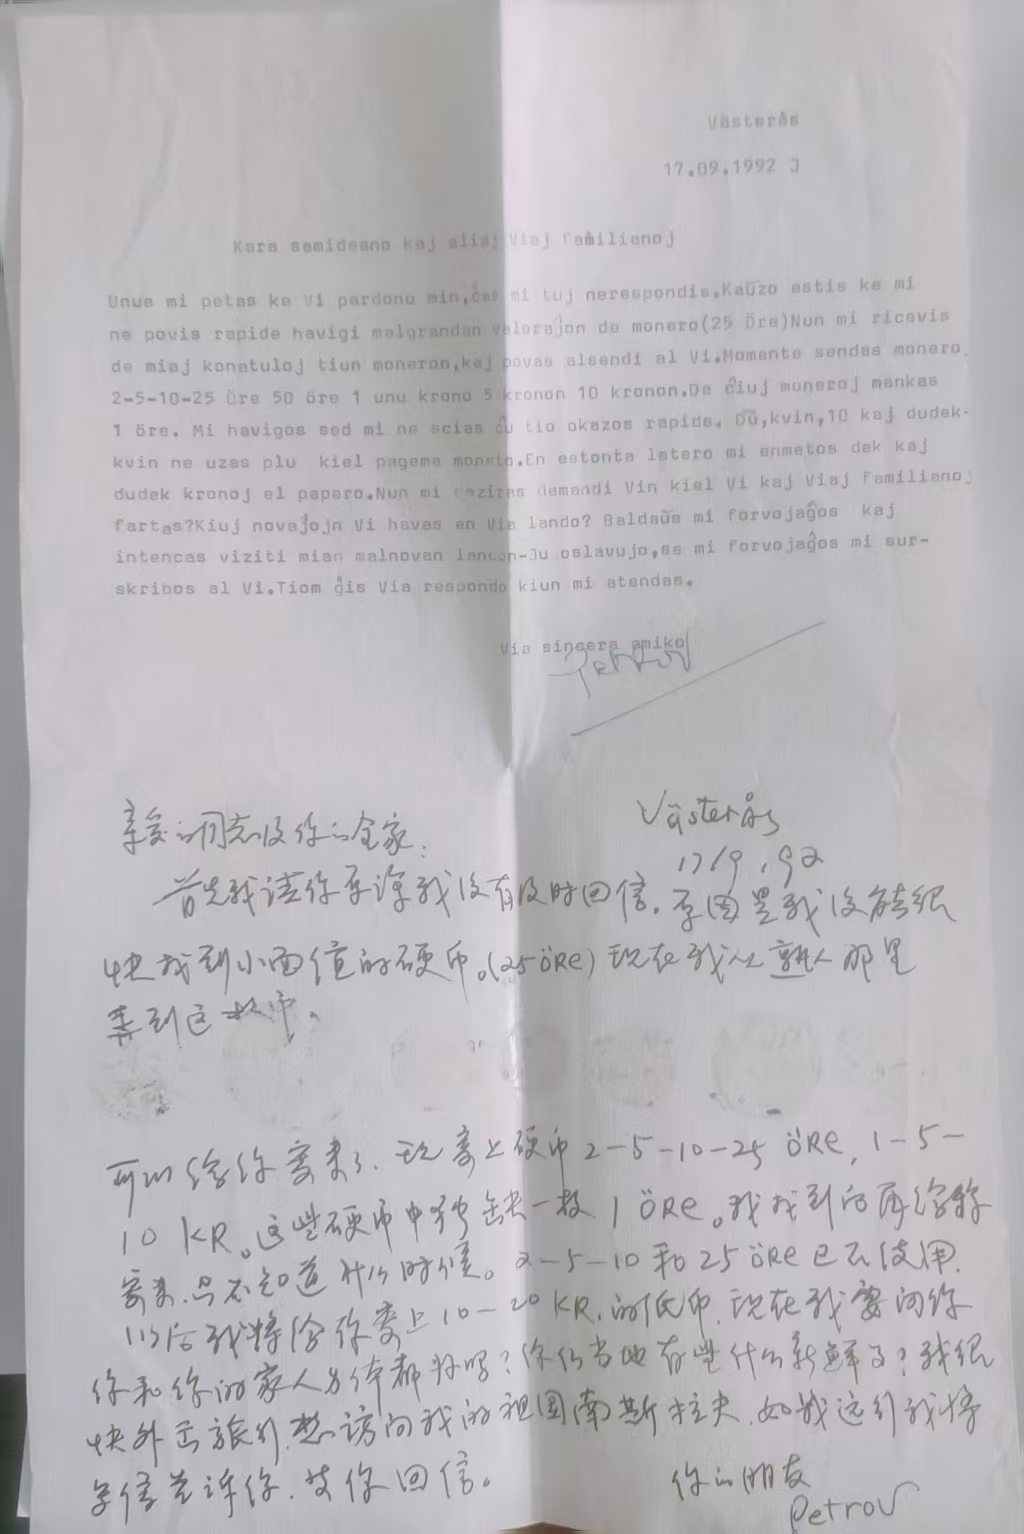 Västerås
17.09.1992 J
Kara samideano kaj aliaj Viaj familianoj
Unue mi petas ke Vi pardonu min,ĉar mi tuj nerespondis.Kaŭzo estis ke mi
ne povis rapide havigi malgrandan valoraĵon de monero(25 Öre)Nun mi ricevis
de miaj konatuloj tiun moneron,kaj povas alsendi al Vi.Momente sendas monero
2-5-10-25 öre 50 öre 1 unu krono 5 kronon 10 kronon.De ĉiuj moneroj mankas
1 öre. Mi havigos sed mi ne scias ĉu tio okazos rapide. Du,kvin,10 kaj dudek-
kvin ne uzas plu kiel pagema moneto.En estonta letero mi enmetos dek kaj
dudek kronoj el papero.Nun mi deziras demandi Vin kiel Vi kaj Viaj familianoj
fartas?Kiuj novaĵojn Vi havas en Via lando? Baldaŭe mi forvojaĝos kaj
intencas viziti mian malnovan landon-Ju oslavujo,se mi forvojaĝos mi sur-
skribos al Vi.Tiom ĝis Via respondo kiun mi atendas.
Via sincera amiko
Petrov
亲爱的同志及你的全家：
Västerås
17/9.92
首先我请你原谅我没有及时回信。原因是我没能很
快找到小面值的硬币。(25 öRe) 现在我从熟人那里
弄到这枚币。
可以给你寄来了、现寄上硬币 2-5-10-25 öRe, 1-5-
10 KR。这些硬币中缺一枚 1 öRe。我找到的再给你
寄来、只不知道什么时候。2-5-10 和 25 öRe 已不使用.
以后我将给你寄上 10-20 KR. 的纸币. 现在我要问你
你和你的家人身体都好吗？你们当地有些什么新鲜事？我很
快外出旅行. 想访问我的祖国南斯拉夫. 如我远行我将
写信告诉你. 等你回信。
你的朋友
Petrov